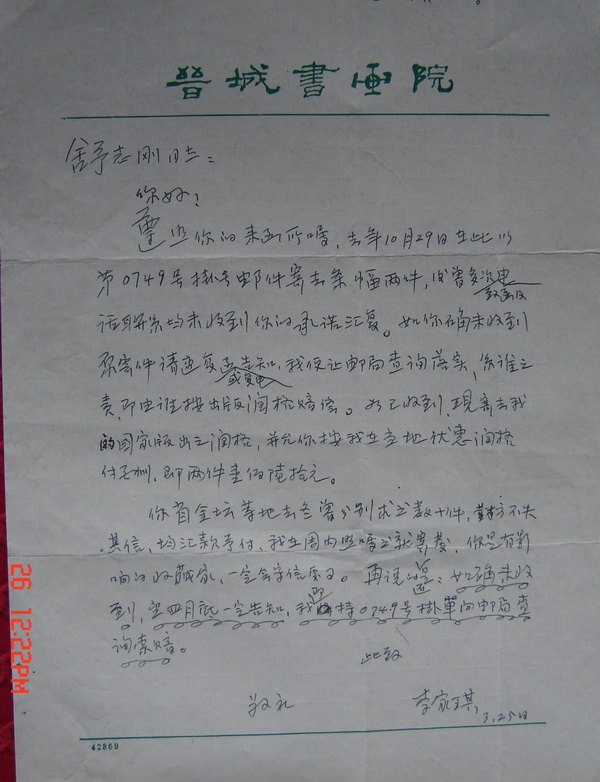 晋城書画院
舒志刚同志：
你好！
遵照你的来函所嘱，去年10月29日在此以
第0749号掛号邮件寄去条幅两件，曾多次电
话联系均未收到你的承诺汇复。如你确未收到
原寄件请速复函告知，我便让邮局查询落实，系谁之
或复电
责，即由谁按出版润格赔偿。如已收到，现寄去我
的国家版出之润格，并允你按我在当地优惠润格
付酬，即两件壹佰陆拾元。
你省金坛等地去冬曾分别求之数十件，对方不失
其信，均汇款予付，我在周内照嘱就寄发，你是有影
响的收藏家，一定会守信 再说：如确未收
到，望四月底一定告知，我即持0749号掛單向邮局查
询索赔。
此致
敬礼
李家琪
3.25日
42869
26 12:22PM